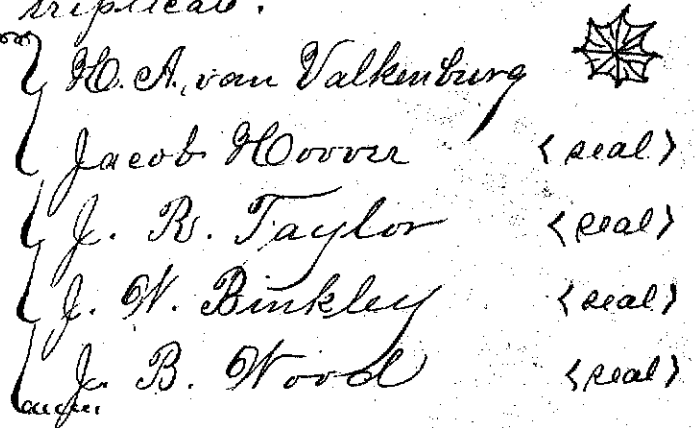 triplicate.
H. A. van Valkenburg
Jacob Hoover <seal>
J. R. Taylor <seal>
J. W. Binkley <seal>
J. B. Wood <seal>